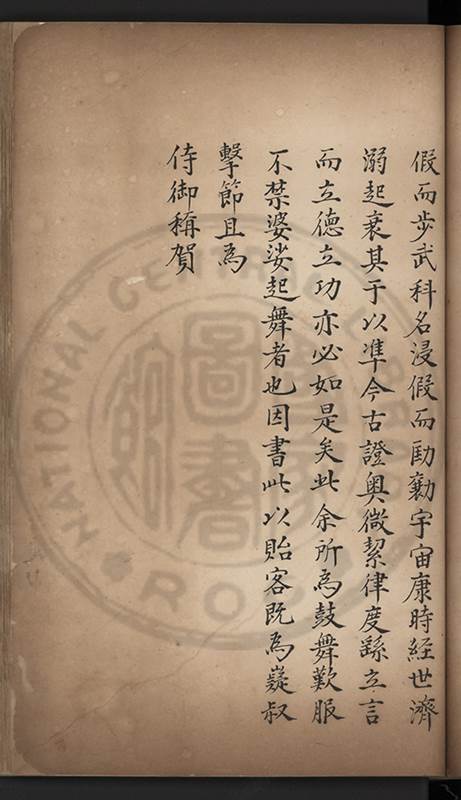 假而步武科名浸假而勛勷宇宙康時經世濟
溺起衰其于以準今古證奧微絜律度繇立言
而立德立功亦必如是矣此余所為鼓舞歎服
不禁婆娑起舞者也因書此以貽客既為嶷叔
擊節且為
侍御稱賀
NATIONAL CENTRAL LIBRARY
R.O.C.
國家圖書館